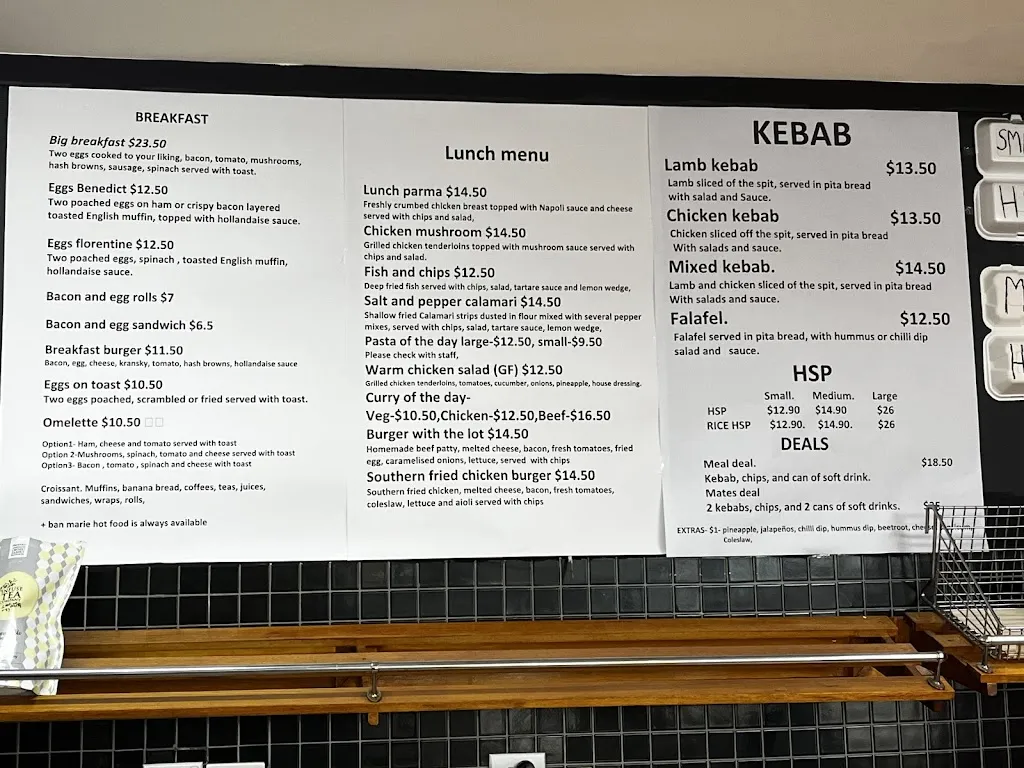 BREAKFAST
Big breakfast $23.50
Two eggs cooked to your liking, bacon, tomato, mushrooms,
hash browns, sausage, spinach served with toast.
Eggs Benedict $12.50
Two poached eggs on ham or crispy bacon layered
toasted English muffin, topped with hollandaise sauce.
Eggs florentine $12.50
Two poached eggs, spinach , toasted English muffin,
hollandaise sauce.
Bacon and egg rolls $7
Bacon and egg sandwich $6.5
Breakfast burger $11.50
Bacon, egg, cheese, kransky, tomato, hash browns, hollandaise sauce
Eggs on toast $10.50
Two eggs poached, scrambled or fried served with toast.
Omelette $10.50
Option1- Ham, cheese and tomato served with toast
Option 2-Mushrooms, spinach, tomato and cheese served with toast
Option3- Bacon , tomato , spinach and cheese with toast
Croissant. Muffins, banana bread, coffees, teas, juices,
sandwiches, wraps, rolls,
+ ban marie hot food is always available
Lunch menu
Lunch parma $14.50
Freshly crumbed chicken breast topped with Napoli sauce and cheese
served with chips and salad,
Chicken mushroom $14.50
Grilled chicken tenderloins topped with mushroom sauce served with
chips and salad.
Fish and chips $12.50
Deep fried fish served with chips, salad, tartare sauce and lemon wedge,
Salt and pepper calamari $14.50
Shallow fried Calamari strips dusted in flour mixed with several pepper
mixes, served with chips, salad, tartare sauce, lemon wedge,
Pasta of the day large-$12.50, small-$9.50
Please check with staff,
Warm chicken salad (GF) $12.50
Grilled chicken tenderloins, tomatoes, cucumber, onions, pineapple, house dressing.
Curry of the day-
Veg-$10.50,Chicken-$12.50,Beef-$16.50
Burger with the lot $14.50
Homemade beef patty, melted cheese, bacon, fresh tomatoes, fried
egg, caramelised onions, lettuce, served with chips
Southern fried chicken burger $14.50
Southern fried chicken, melted cheese, bacon, fresh tomatoes,
coleslaw, lettuce and aioli served with chips
KEBAB
Lamb kebab $13.50
Lamb sliced of the spit, served in pita bread
with salad and Sauce.
Chicken kebab $13.50
Chicken sliced off the spit, served in pita bread
With salads and sauce.
Mixed kebab. $14.50
Lamb and chicken sliced of the spit, served in pita bread
With salads and sauce.
Falafel. $12.50
Falafel served in pita bread, with hummus or chilli dip
salad and sauce.
HSP
Small. Medium. Large
HSP $12.90 $14.90 $26
RICE HSP $12.90. $14.90. $26
DEALS
Meal deal. $18.50
Kebab, chips, and can of soft drink.
Mates deal
2 kebabs, chips, and 2 cans of soft drinks.
EXTRAS- $1- pineapple, jalapeños, chilli dip, hummus dip, beetroot,
Coleslaw,
TEA